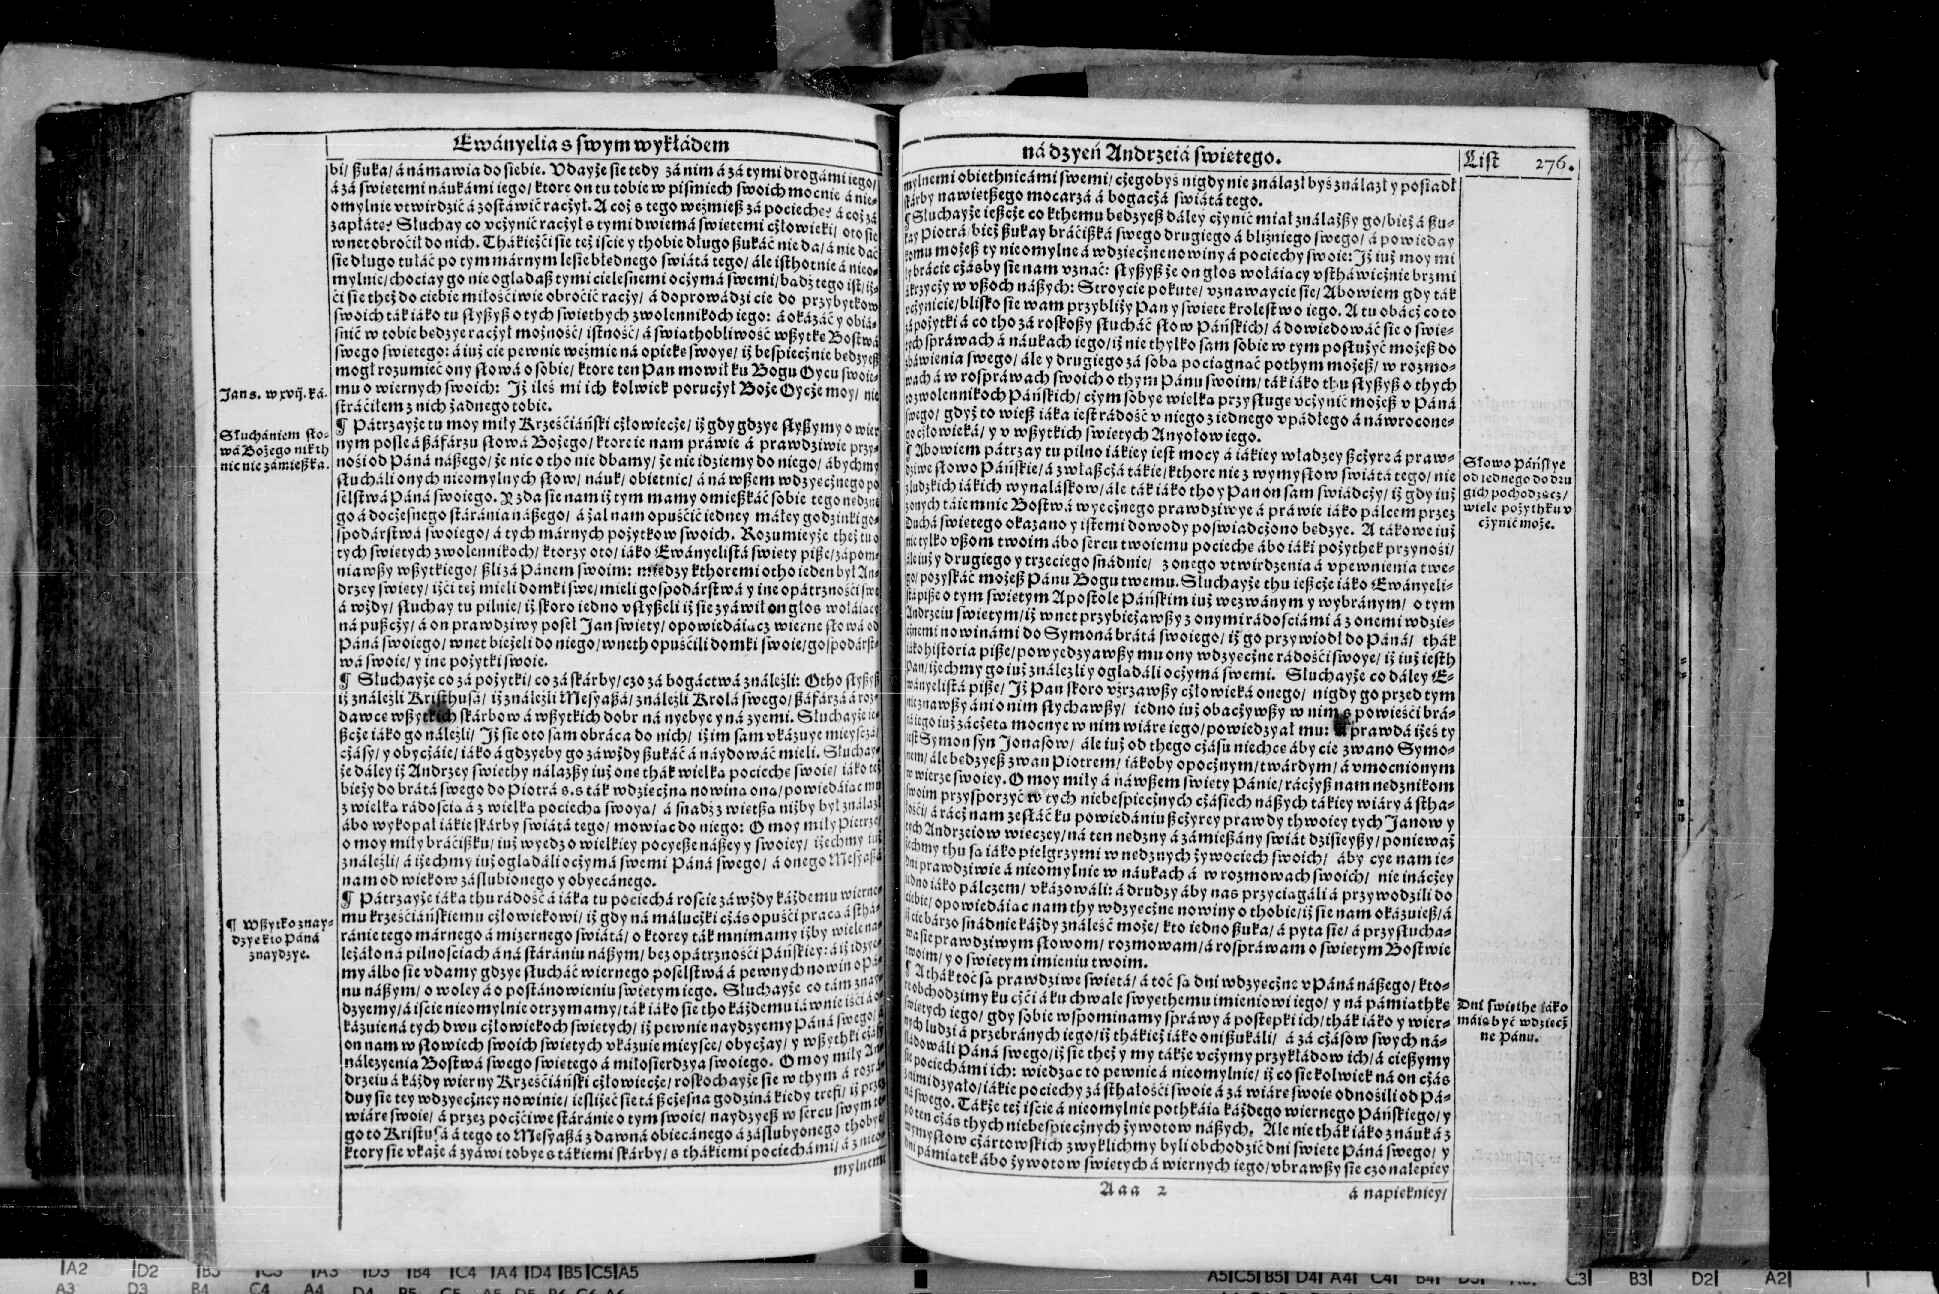 Ewányelia s swym wykłádem
bi/ ßuka/ á námawia do siebie. Vdayże sie tedy zá nim á zá tymi drogámi iego/
á zá swietemi náukámi iego/ ktore on tu tobie w pismiech swoich mocnie á nie-
omylnie vtwirdzić á zostáwić racżył. A coż s tego weźmieß zá pocieche? á coż zá
zapłate? Słuchay co vcżynić racżył s tymi dwiemá swietemi cżłowieki/ oto sie
wnet obrocił do nich. Thákieżci sie też iście y thobie długo ßukáć nie da/ á nie dać
sie długo tułáć po tym márnym lesie błednego świátá tego/ ále isthotnie á nieo-
mylnie/ chociay go nie ogladaß tymi cielesnemi ocżymá swemi/ badź tego ist/ iż-
ći sie theż do ciebie miłościwie obroćić racży/ á doprowádzi cie do przybytkow
swoich ták iáko tu słyßyß o tych swiethych zwolennikoch iego: á okázáć y obiá-
śnić w tobie bedzye racżył możność/ istność/ á swiathobliwość wßytke Bostwá
swego swietego: á iuż cie pewnie weźmie ná opieke swoye/ iż bespiecżnie bedzyeß
mogł rozumieć ony słowá o sobie/ ktore ten Pan mowił ku Bogu Oycu swoie-
mu o wiernych swoich: Iż ileś mi ich kolwiek porucżył Boże Oycże moy/ nie
stráciłem z nich żadnego tobie.
¶ Pátrzayże tu moy miły Krześćiáński cżłowiecże/ iż gdy gdzye słyßymy o wier
nym pośle á ßáfárzu słowá Bożego/ ktore ie nam práwie á prawdziwie przy-
nośi od Páná náßego/ że nic o tho nie dbamy/ że nie idziemy do niego/ ábychmy
słucháli onych nieomylnych słow/ náuk/ obietnic/ á ná wßem wdzyecżnego po
selstwá Páná swoiego. Y zda sie nam iż tym mamy omießkáć sobie tego nedzne
go á docżesnego stáránia náßego/ á żal nam opuśćić iedney máley godzinki go-
spodárstwá swoiego/ á tych márnych pożytkow swoich. Rozumieyże theż tu o
tych swietych zwolennikoch/ ktorzy oto/ iáko Ewányelistá swiety piße/ zápom-
niawßy wßytkiego/ ßli zá Pánem swoim: miedzy kthoremi otho ieden był An-
drzey swiety/ iżći też mieli domki swe/ mieli gospodárstwá y ine opátrzności swe
á wżdy/ słuchay tu pilnie/ iż skoro iedno vsłyßeli iż sie zyáwił on głos woláiacy
ná pußcży/ á on prawdziwy poseł Jan swiety/ opowiedáiacz wierne słowá od
Páná swoiego/ wnet bieżeli do niego/ wneth opuśćili domki swoie/ gospodárst-
wá swoie/ y ine pożytki swoie.
¶ Słuchayże co zá pożytki/ co zá skárby/ czo zá bogáctwá ználeźli: Otho słyßyß
iż ználeźli Kristhusá/ iż ználeźli Mesyaßá/ ználeźli Krolá swego/ ßáfárzá á roz-
dawce wßytkich skárbow á wßytkich dobr ná nyebye y ná zyemi. Słuchayże ie-
ßcże iáko go náleźli/ Iż sie oto sam obráca do nich/ iż im sam vkázuye mieyscza/
cżásy/ y obycżáie/ iáko á gdzyeby go záwżdy ßukáć á náydowáć mieli. Słuchay-
że dáley iż Andrzey swiethy nálazßy iuż one thák wielka pocieche swoie/ iáko też
bieży do brátá swego do Piotrá s. s ták wdzieczna nowina ona/ powiedáiac mu
z wielka rádościa á z wielka pociecha swoya/ á snadź z wietßa niżby był ználazł
ábo wykopał iákie skárby świátá tego/ mowiac do niego: O moy miły Pietrze
o moy miły bráćißku/ iuż wyedz o wielkiey pocyeße náßey y swoiey/ iżechmy iuż
ználeźli/ á iżechmy iuż ogladáli ocżymá swemi Páná swego/ á onego Mesyaßá
nam od wiekow záslubionego y obyecánego.
¶ Pátrzayże iáka thu rádość á iáka tu pociechá roście záwżdy káżdemu wierne-
mu krześćiáńskiemu cżłowiekowi/ iż gdy ná málucżki cżás opuśći praca á sthá-
ránie tego márnego á mizernego świátá/ o ktorey ták mnimamy iżby wiele ná-
leżáło ná pilnościach á ná stárániu náßym/ bez opátrzności Páńskiey: á iż idzye-
my álbo sie vdamy gdzye słucháć wiernego poselstwá á pewnych nowin o Pá-
nu náßym/ o woley á o postánowieniu swietym iego. Słuchayże co tám znay-
dzyemy/ á iście nieomylnie otrzymamy/ ták iáko sie tho káżdemu iáwnie iśći á o-
kázuie ná tych dwu cżłowiekoch swietych/ iż pewnie naydzyemy Páná swego/ á
on nam w słowiech swoich swietych vkázuie mieysce/ obycżay/ y wßythki cżásy
nálezyenia Bostwá swego swietego á miłosierdzya swoiego. O moy miły An-
drzeiu á káżdy wierny Krześćiáński cżłowiecże/ roskochayże sie w thym á rozrá-
duy sie tey wdzyecżney nowinie/ iesliżeć sie tá ßcżesna godziná kiedy trefi/ iż przez
wiáre swoie/ á przez pocżćiwe stáránie o tym swoie/ naydzyeß w sercu swym te-
go to Kristusá á tego to Mesyaßá z dawná obiecánego á záslubyonego thobye/
ktory sie vkaże á zyáwi tobye s tákiemi skárby/ s thákiemi pociechámi/ á z nieo-
mylnemi
Jan s. w xvij. ká.
Słuchániem sło-
wá Bożego nikth
nic nie zámießka.
¶ Wßytko znay-
dzye kto Páná
znaydzye.
ná dzyeń Andrzeiá swietego.
List 276.
mylnemi obiethnicámi swemi/ cżegobyś nigdy nie ználazł byś ználazł y posiadł
skárby nawietßego mocarzá á bogaczá świátá tego.
¶ Słuchayże ießcże co kthemu bedzyeß dáley cżynić miał ználazßy go/ bież á ßu-
kay Piotrá/ bież ßukay bráćißká swego drugiego á bliźniego swego/ á powieday
komu możeß ty nieomylne á wdziecżne nowiny á pociechy swoie: Iż iuż moy mi
ły brácie cżásby sie nam vznáć: słyßyß że on głos woláiacy vsthawicżnie brzmi
á krzycży w vßoch náßych: Stroycie pokute/ vznawaycie sie/ Abowiem gdy ták
vcżynicie/ blisko sie wam przybliży Pan y swiete krolestwo iego. A tu obácż co to
zá pożytki á co tho zá roskoßy słucháć słow Páńskich/ á dowiedowáć sie o swie-
tych spráwach á náukach iego/ iż nie thylko sam sobie w tym posłużyć możeß do
zbáwienia swego/ ále y drugiego zá soba pociagnać pothym możeß/ w rozmo-
wach á w rospráwach swoich o thym Pánu swoim/ ták iáko thu słyßyß o thych
to zwolennikoch Páńskich/ cżym sobye wielka przysługe vcżynić możeß v Páná
swego/ gdyż to wieß iáka iest rádość v niego z iednego vpádłego á náwrocone-
go cżłowieká/ y v wßytkich swietych Anyołow iego.
¶ Abowiem pátrzay tu pilno iákiey iest mocy á iákiey władzey ßcżyre á praw-
dziwe słowo Páńskie/ á zwłaßcżá tákie/ kthore nie z wymysłow świátá tego/ nie
z ludzkich iákich wynaláskow/ ále ták iáko tho y Pan on sam świádcży/ iż gdy iuż
onych táiemnic Bostwá wyecżnego prawdziwye á práwie iáko pálcem przez
Duchá swietego okazano y istemi dowody poświadcżono bedzye. A tákowe iuż
nie tylko vßom twoim ábo sercu twoiemu pocieche ábo iáki pożythek przynośi/
ále iuż y drugiego y trzeciego snádnie/ z onego vtwirdzenia á vpewnienia twe-
go/ pozyskáć możeß Pánu Bogu twemu. Słuchayże thu ießcże iáko Ewányeli-
stá piße o tym swietym Apostole Páńskim iuż wezwánym y wybránym/ o tym
Andrzeiu swietym/ iż wnet przybieżawßy z onymi rádościámi á z onemi wdzie-
cżnemi nowinámi do Symoná brátá swoiego/ iż go przywiodł do Páná/ thák
iáko historia piße/ powyedzyawßy mu ony wdzyecżne rádości swoye/ iż iuż iesth
Pan/ iżechmy go iuż ználeźli y ogladáli ocżymá swemi. Słuchayże co dáley E-
wányelistá piße/ Iż Pan skoro vźrzawßy cżłowieká onego/ nigdy go przed tym
nie znawßy áni o nim słychawßy/ iedno iuż obacżywßy w nim s powieści brá-
tá iego iuż zácżeta mocnye w nim wiáre iego/ powiedzyał mu: A prawdá iżeś ty
iest Symon syn Jonasow/ ále iuż od thego cżásu niechce áby cie zwano Symo-
nem/ ále bedzyeß zwan Piotrem/ iákoby opocżnym/ twárdym/ á vmocnionym
w wierze swoiey. O moy miły á náwßem swiety Pánie/ rácżyß nam nedznikom
swoim przysporzyć w tych niebespiecżnych cżásiech náßych tákiey wiáry á sthá-
łości/ á rácż nam zesłáć ku powiedániu ßcżyrey prawdy thwoiey tych Janow y
tych Andrzeiow wiecżey/ ná ten nedzny á zámießány świát dzisieyßy/ ponieważ
iżechmy thu sa iáko pielgrzymi w nedznych żywociech swoich/ áby cye nam ie-
dni prawdziwie á nieomylnie w náukach á w rozmowach swoich/ nie inácżey
iedno iáko pálczem/ vkázowáli: á drudzy áby nas przyciagáli á przywodzili do
ciebie/ opowiedáiac nam thy wdzyecżne nowiny o thobie/ iż sie nam okázuieß/ á
iż cie bárzo snádnie káżdy ználeść może/ kto iedno ßuka/ á pyta sie/ á przysłucha-
wa sie prawdziwym słowom/ rozmowam/ á rospráwam o swietym Bostwie
twoim/ y o swietym imieniu twoim.
¶ A thák toć sa prawdziwe swietá/ á toć sa dni wdzyecżne v Páná náßego/ kto-
re obchodzimy ku cżći á ku chwale swyethemu imieniowi iego/ y ná pámiathke
swietych iego/ gdy sobie wspominamy spráwy á postepki ich/ thák iáko y wier-
nych ludzi á przebránych iego/ iż thákież iáko oni ßukáli/ á zá cżásow swych ná-
śládowáli Páná swego/ iż sie theż y my tákże vcżymy przykłádow ich/ á cießymy
sie pociechámi ich: wiedzac to pewnie á nieomylnie/ iż co sie kolwiek ná on cżás
z nimi dzyało/ iákie pociechy zá sthałości swoie á zá wiáre swoie odnośili od Pá-
ná swego. Tákże też iście á nieomylnie pothkáia káżdego wiernego Páńskiego/ y
po ten cżás thych niebespiecżnych żywotow náßych. Ale nie thák iáko z náuk á z
wymysłow cżártowskich zwyklichmy byli obchodzić dni swiete Páná swego/ y
dni pámiatek ábo żywotow swietych á wiernych iego/ vbrawßy sie czo nalepiey
Aaa 2 á napiekniey/
Słowo Páńskye
od iednego do dru
gich pochodzacz/
wiele pożythku v
cżynić może.
Dni swiethe iáko
máia być wdziecż
ne Pánu.
A2 D2 B3 C3 A3 D3 B4 C4 A4 D4 B5 C5 A5
A3 D3 B4 C4 A4 D4 B5 C5 A5 D5 B6 C6 A6
A5 C5 B5 D4 A4 C4 B4 D3 C3 B3 D2 A2